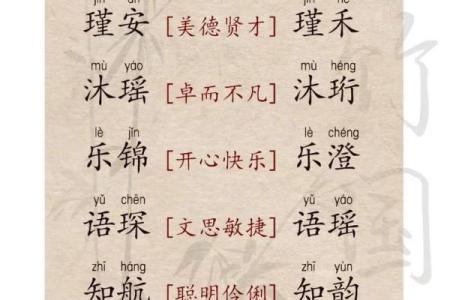 jǐn ān jǐn hé
瑾安 [美德贤才] 瑾禾
mù yáo mù héng
沐瑶 [卓而不凡] 沐珩
lè jǐn lè chéng
乐锦 [开心快乐] 乐澄
yǔ chēn yǔ yáo
语琛 [文思敏捷] 语瑶
zhī háng zhī yùn
知航 [聪明伶俐] 知韵